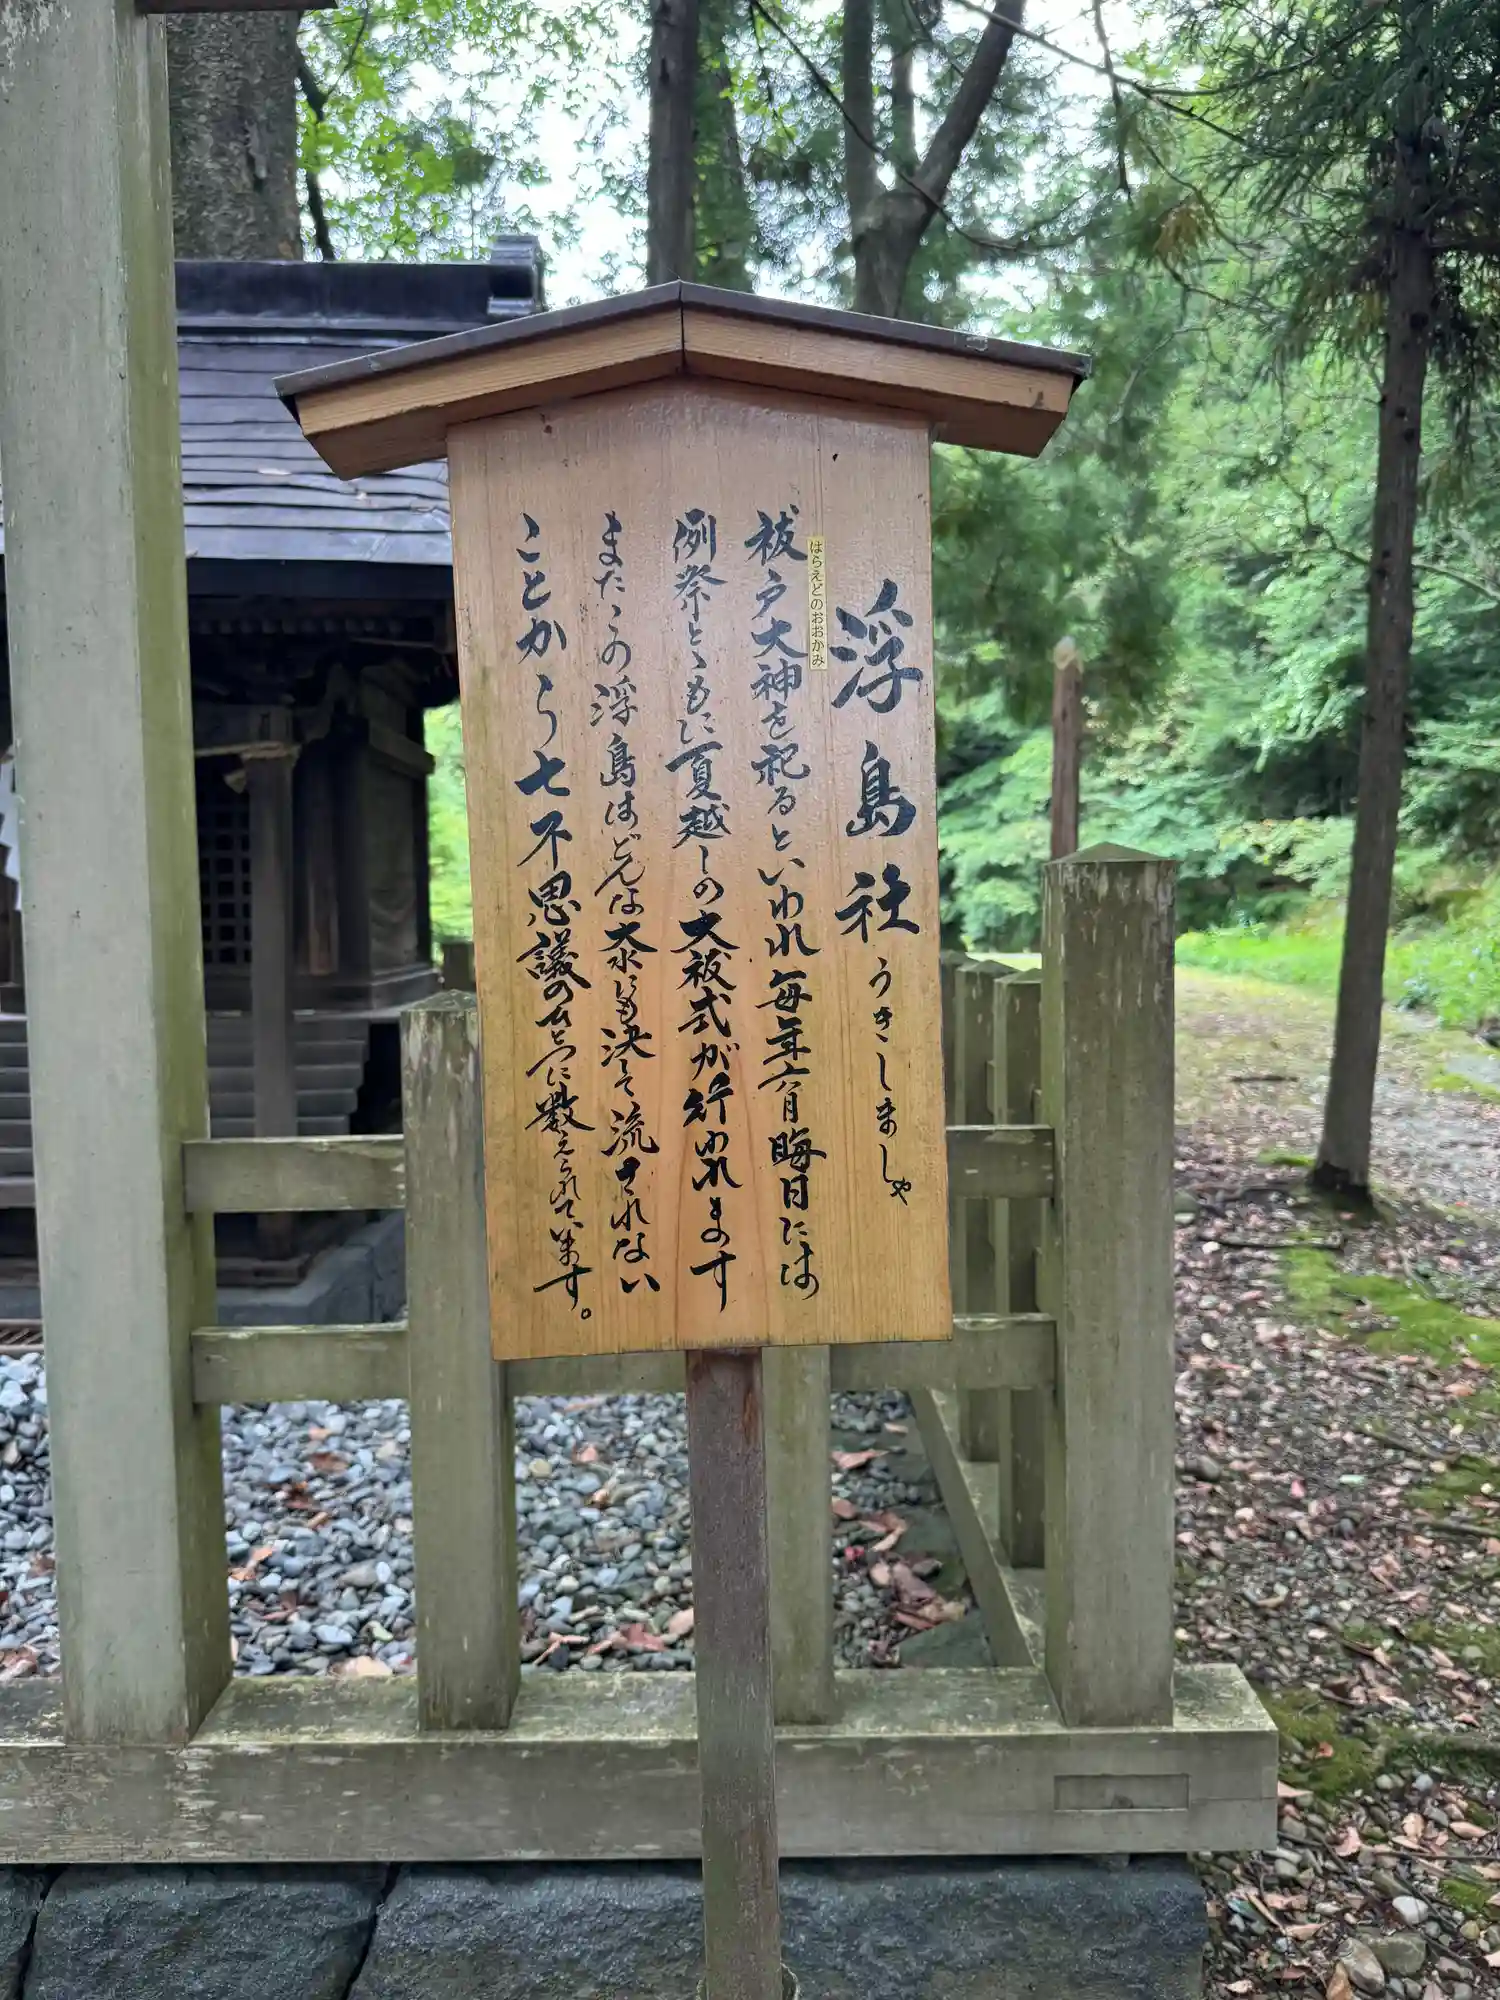 浮島社 うきしましゃ
はらえどのおおかみ
祓戸大神を祀るといわれ毎年六月晦日には
例祭とゝもに夏越しの大祓式が行われます
またゝの浮島はどんな大水にも決して流されない
ことから七不思議のひとつに数えられています。